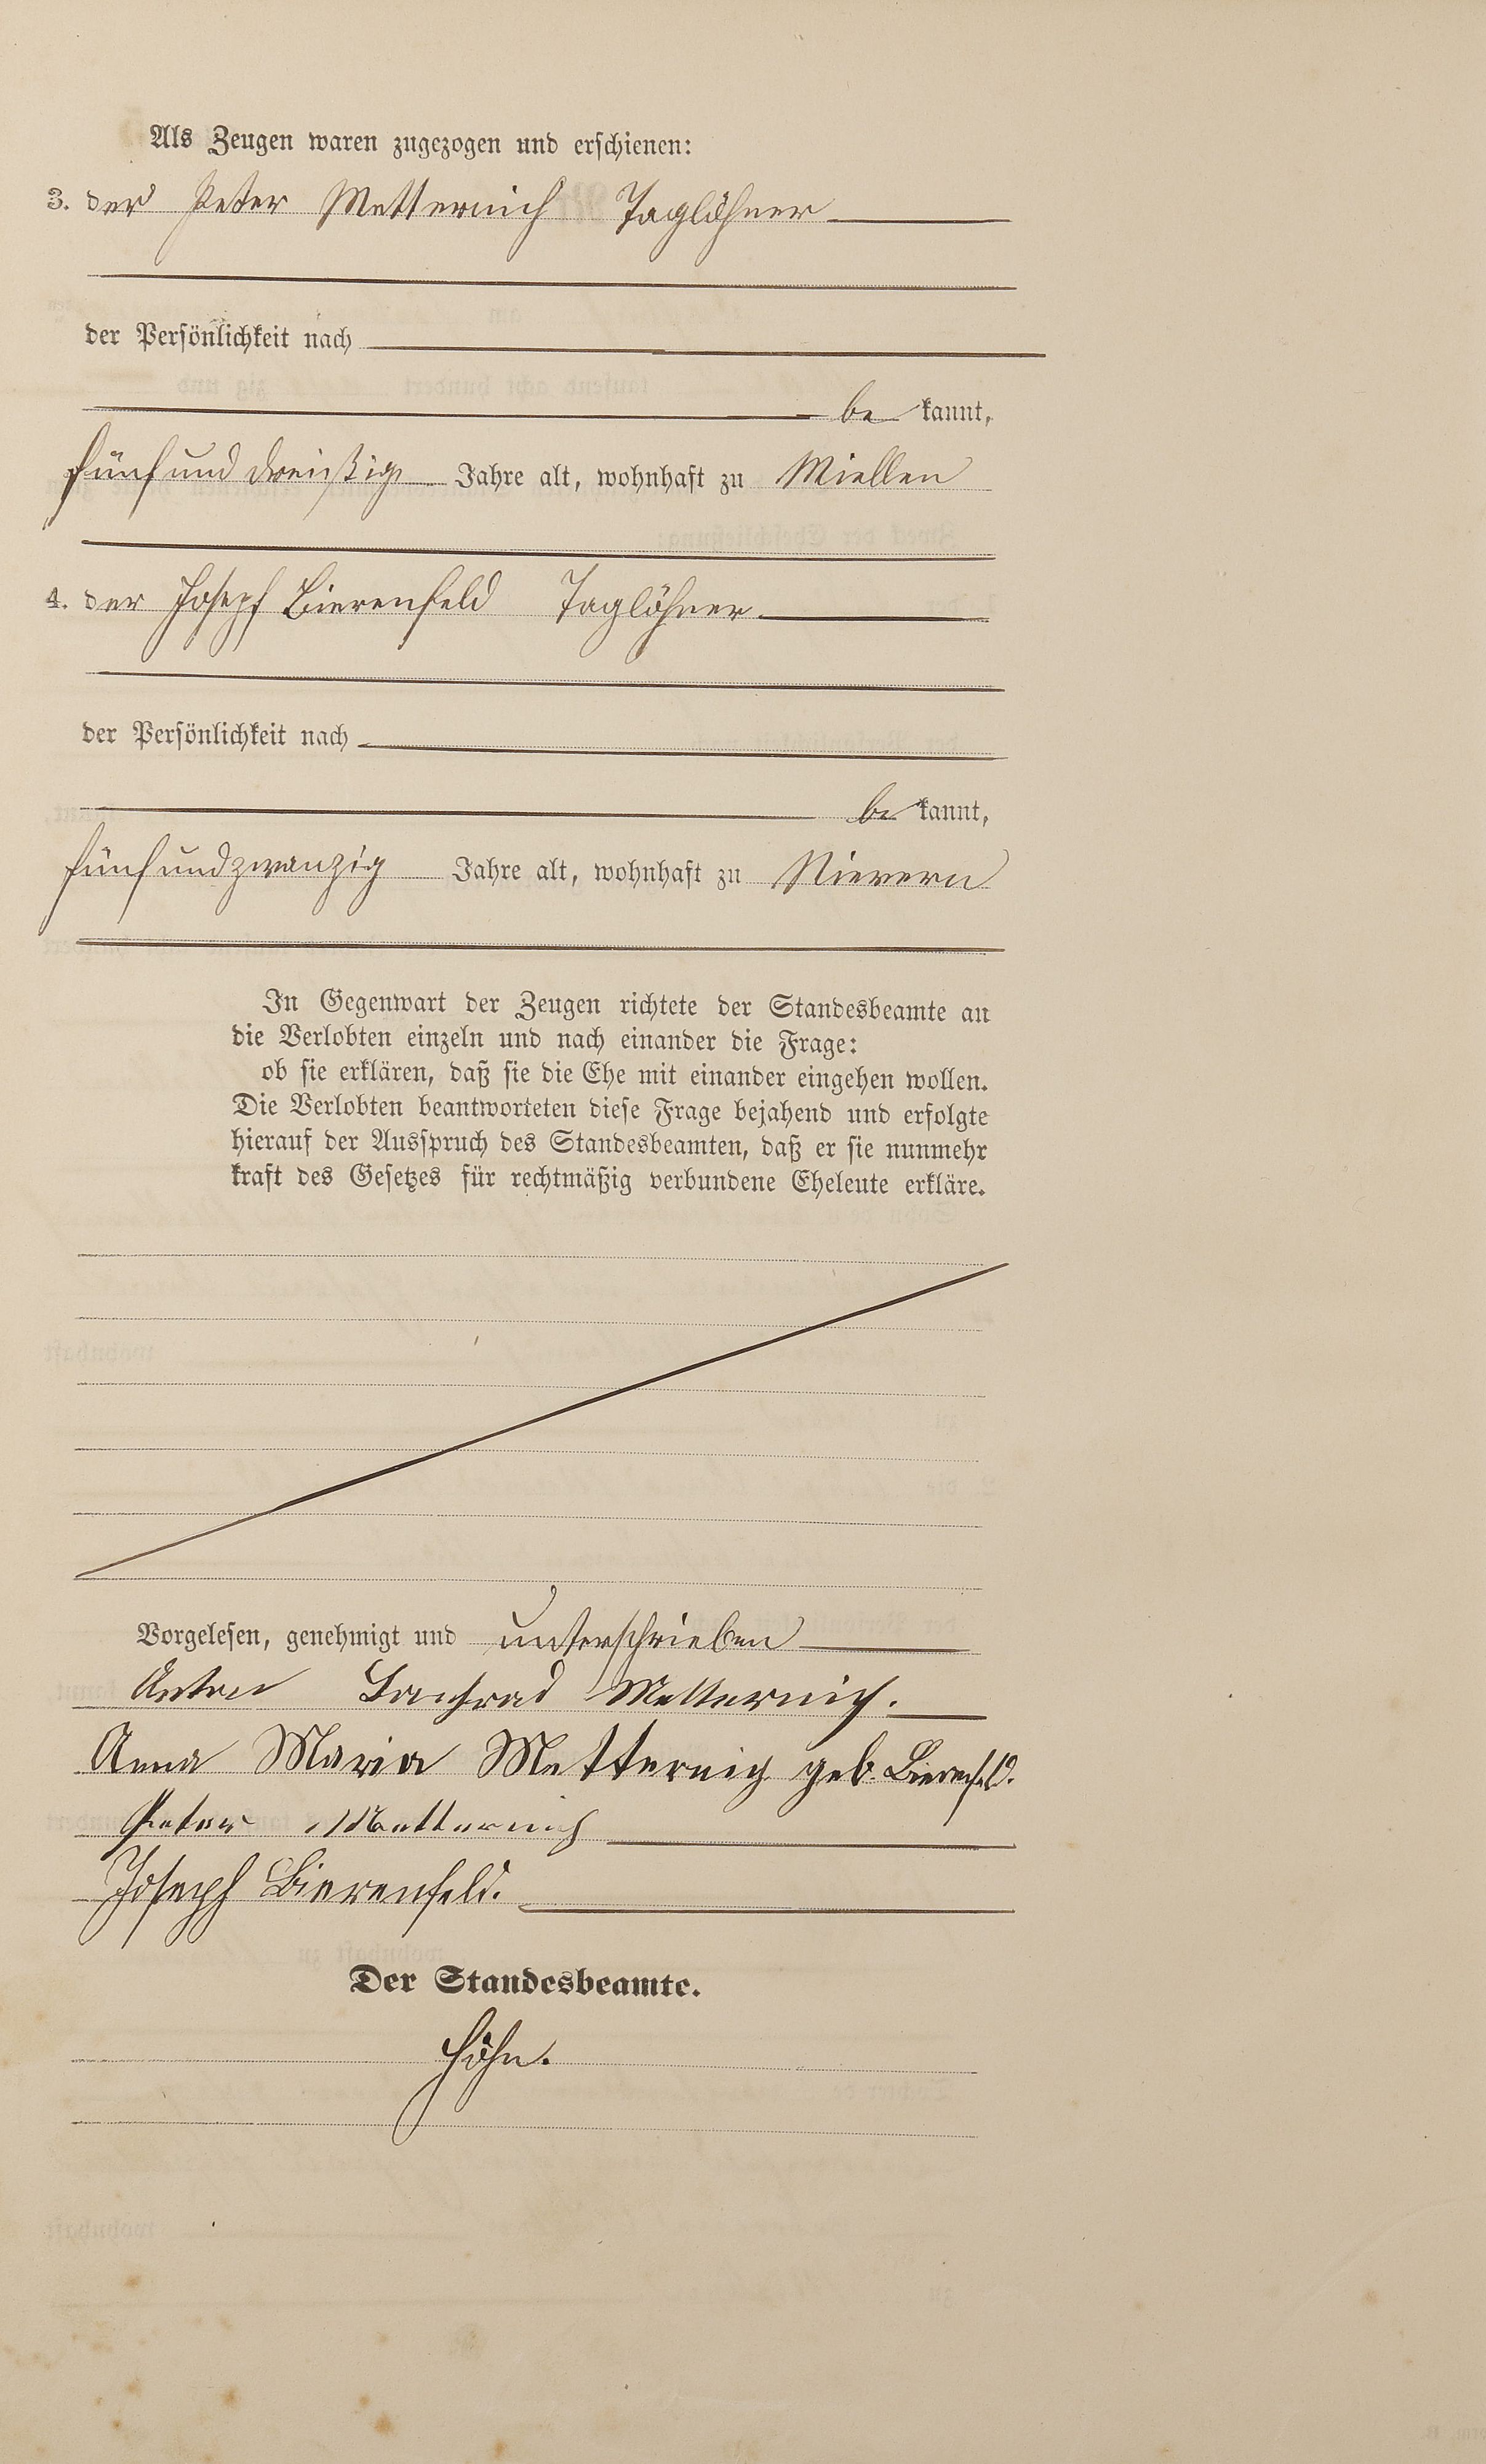 Als Zeugen waren zugezogen und erschienen:
3. der Peter Metternich Taglöhner
der Persönlichkeit nach
bekannt,
fünfunddreißig Jahre alt, wohnhaft zu Miellen
4. der Joseph Bierenfeld Taglöhner
der Persönlichkeit nach
bekannt,
fünfundzwanzig Jahre alt, wohnhaft zu Nievern
In Gegenwart der Zeugen richtete der Standesbeamte an
die Verlobten einzeln und nach einander die Frage:
ob sie erklären, daß sie die Ehe mit einander eingehen wollen.
Die Verlobten beantworteten diese Frage bejahend und erfolgte
hierauf der Ausspruch des Standesbeamten, daß er sie nunmehr
kraft des Gesetzes für rechtmäßig verbundene Eheleute erkläre.
Vorgelesen, genehmigt und unterschrieben
Anton Metternich.
Anna Maria Metternich geb. Bierenfeld.
Peter Metternich
Joseph Bierenfeld.
Der Standesbeamte.
Höhn.